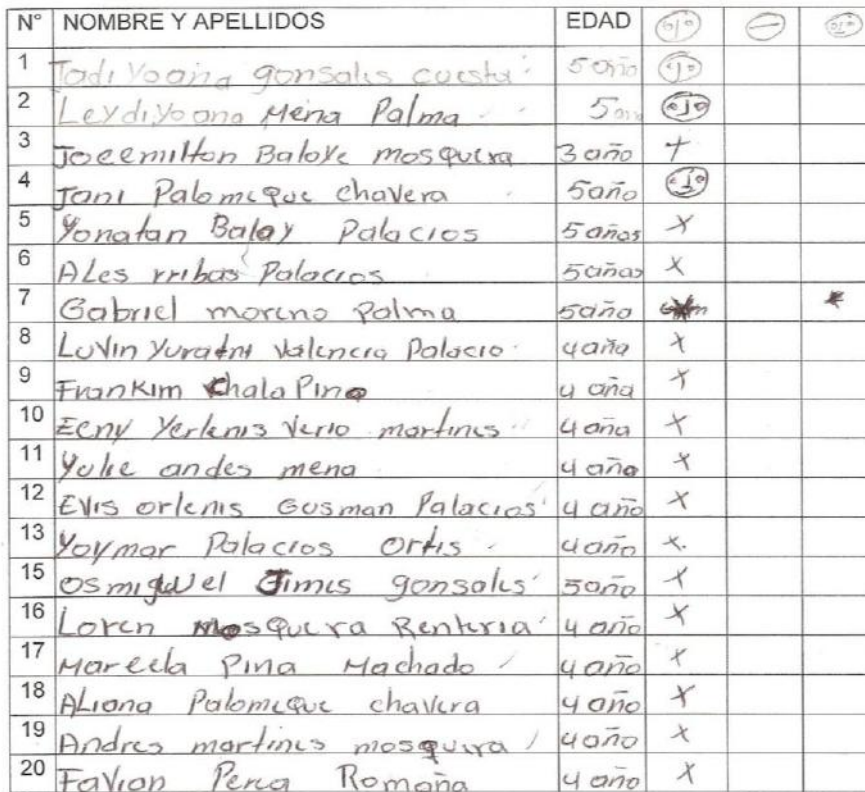 N° NOMBRE Y APELLIDOS EDAD
1 Tadi Yoana gonsales cuesta 5 año
2 Leydi Yoana Mena Palma 5 año
3 Joeemilton Baloye mosquera 3 año +
4 Jani Palomeque chavera 5 año
5 Yonatan Balay Palacios 5 años x
6 ALes rribas Palacios 5 años x
7 Gabriel moreno Palma 5 año
8 Luvin Yuratni Valencia Palacio 4 aña x
9 Frankim chala Pino 4 aña x
10 Ecny Yerlenis Verio martines 4 aña x
11 Yulie andes mena 4 año x
12 Evis orlenis Gusman Palacios 4 año x
13 Yoymar Palacios Ortis 4 año x
15 Osmiguel Jimes gonsales 5 año x
16 Loren Mosquera Renteria 4 año x
17 Marcela Pina Machado 4 año x
18 ALiana Palomeque chavera 4 año x
19 Andres martines mosquera 4 año x
20 Favian Perea Romaña 4 año x